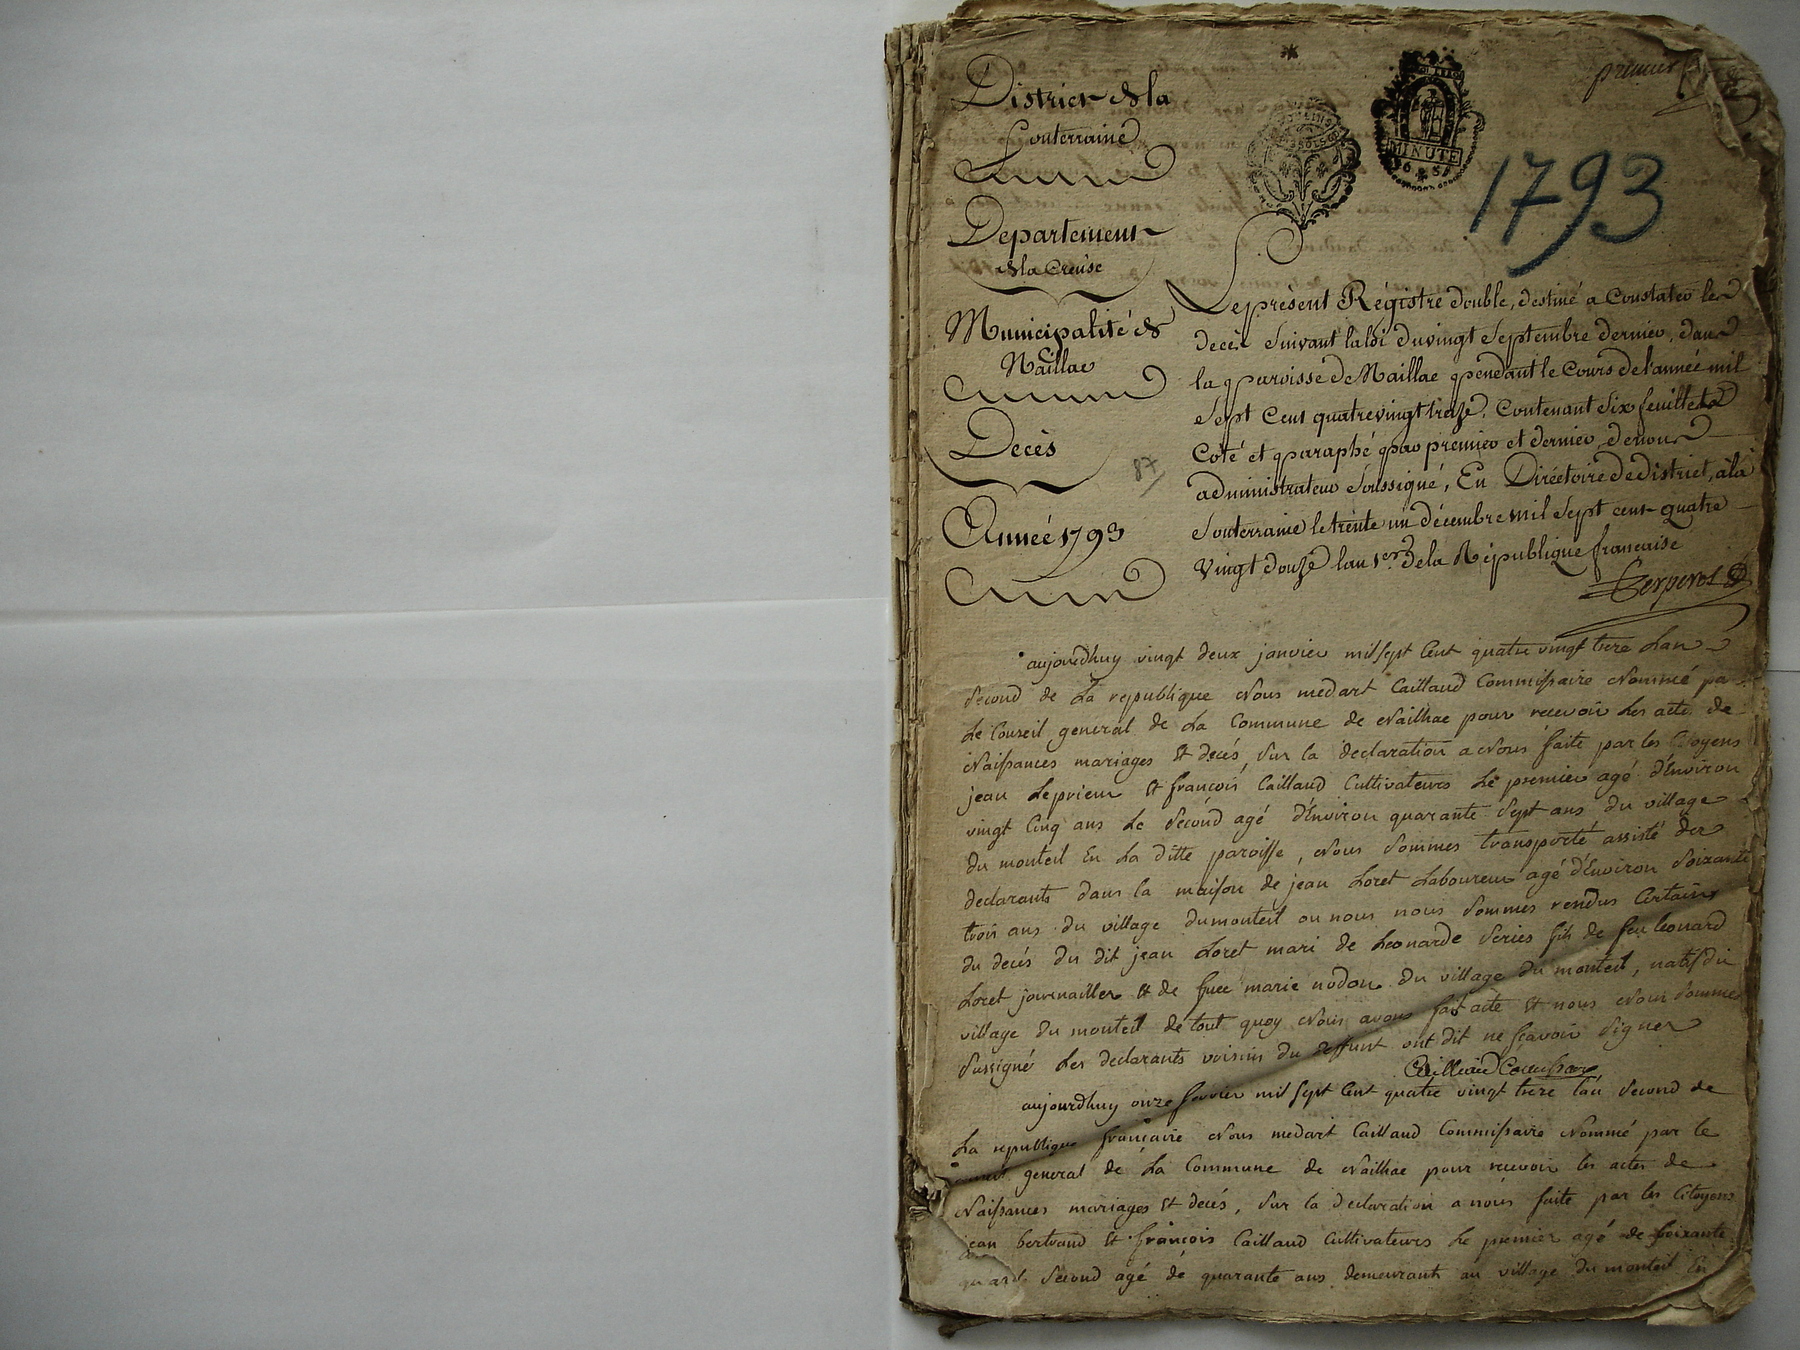 premier
1793
MINUTE
District de la
Souterraine
Departement
de la Creuse
Municipalité de
Naillac
Decès
Année 1793
87
Le présent Régistre double, destiné a Constater les
decès suivant la loi du vingt Septembre dernier, dans
la paroisse de Naillac pendant le Cours de l'année mil
Sept Cent quatre vingt treize. Contenant Six feuillets
Coté et paraphé par premier et dernier de nous
administrateur Soussigné, En Diréctoire de district, à la
Souterraine le trente un décembre mil Sept cent quatre
Vingt douze l'an 1er de la République francaise
aujourdhuy vingt deux janvier mil sept Cent quatre vingt treze Lan
Second de La republique Nous medart Caillaud Commissaire Nommé par
Le Conseil general de La Commune de Nailhac pour recevoir Les actes de
Naissances mariages Et decés, Sur la declaration a Nous faite par les Citoyens
jean Leprieur Et françois Caillaud Cultivateurs Le premier agé d'Environ
vingt Cinq ans Le Second agé d'Environ quarante Sept ans du village
du monteil En La ditte paroisse, Nous Sommes transporté assisté des
declarants dans la maison de jean Loret Laboureur agé d'Environ Soixante
trois ans du village du monteil ou nous nous Sommes rendus Certains
du decés du dit jean Loret mari de Leonarde Series fils de feu leonard
Loret journailler Et de fuee marie nodon du village du monteil, natif du
village du monteil de tout quoy Nous avons fait acte Et nous Nous Sommes
Sussigné Les declarants voisins du deffunt ont dit ne sçavoir Signer
aujourdhuy onze fevrier mil sept Cent quatre vingt treze l'an Second de
La republique françaire Nous medart Caillaud Commissaire Nommé par le
general de La Commune de Nailhac pour recevoir les actes de
Naissances mariages Et decés, Sur la declaration a nous faite par les Citoyens
jean bertrand Et françois Caillaud Cultivateurs Le premier agé de soixante
Second agé de quarante ans demeurant au village du monteil En